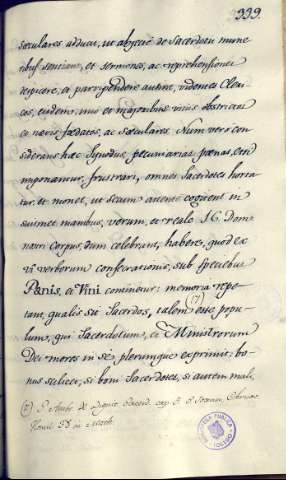 339.
sæculares adduci, ut abjectè de Sacerdotii mune
ribus sentiant, et sermones, ac reprehensiones
rejicere, et parvipendere autem, videntes Cleri
cos, eisdem, imò et majoribus vitiis obstricti
ac nævis fœdatos, ac sæculares. Num verò con
siderans hæc Synodus pecuniarias pœnas, etsi
imponantur, frustrari, omnes Sacerdotes horta
tur, et monet, ut secum attentè cogitent in
suismet manibus, verum, et reale J.C. Dom.
nostri Corpus, dum celebrant, habere, quod ex
vi verborum consecrationis, sub speciebus
Panis, et Vini continetur: memoria repe
tant, qualis sit Sacerdos, talem (7) esse popu
lum, qui Sacerdotum, et Ministrorum
Dei mores in se plerumque exprimit: bo
nus scilicet, si boni Sacerdotes, si autem mali,
(7) S. Ambr. de Dignit. Sacerd. cap. 5.
Homil. 38 in Matth.
BIBLIOTECA PUBLICA
TOLEDO